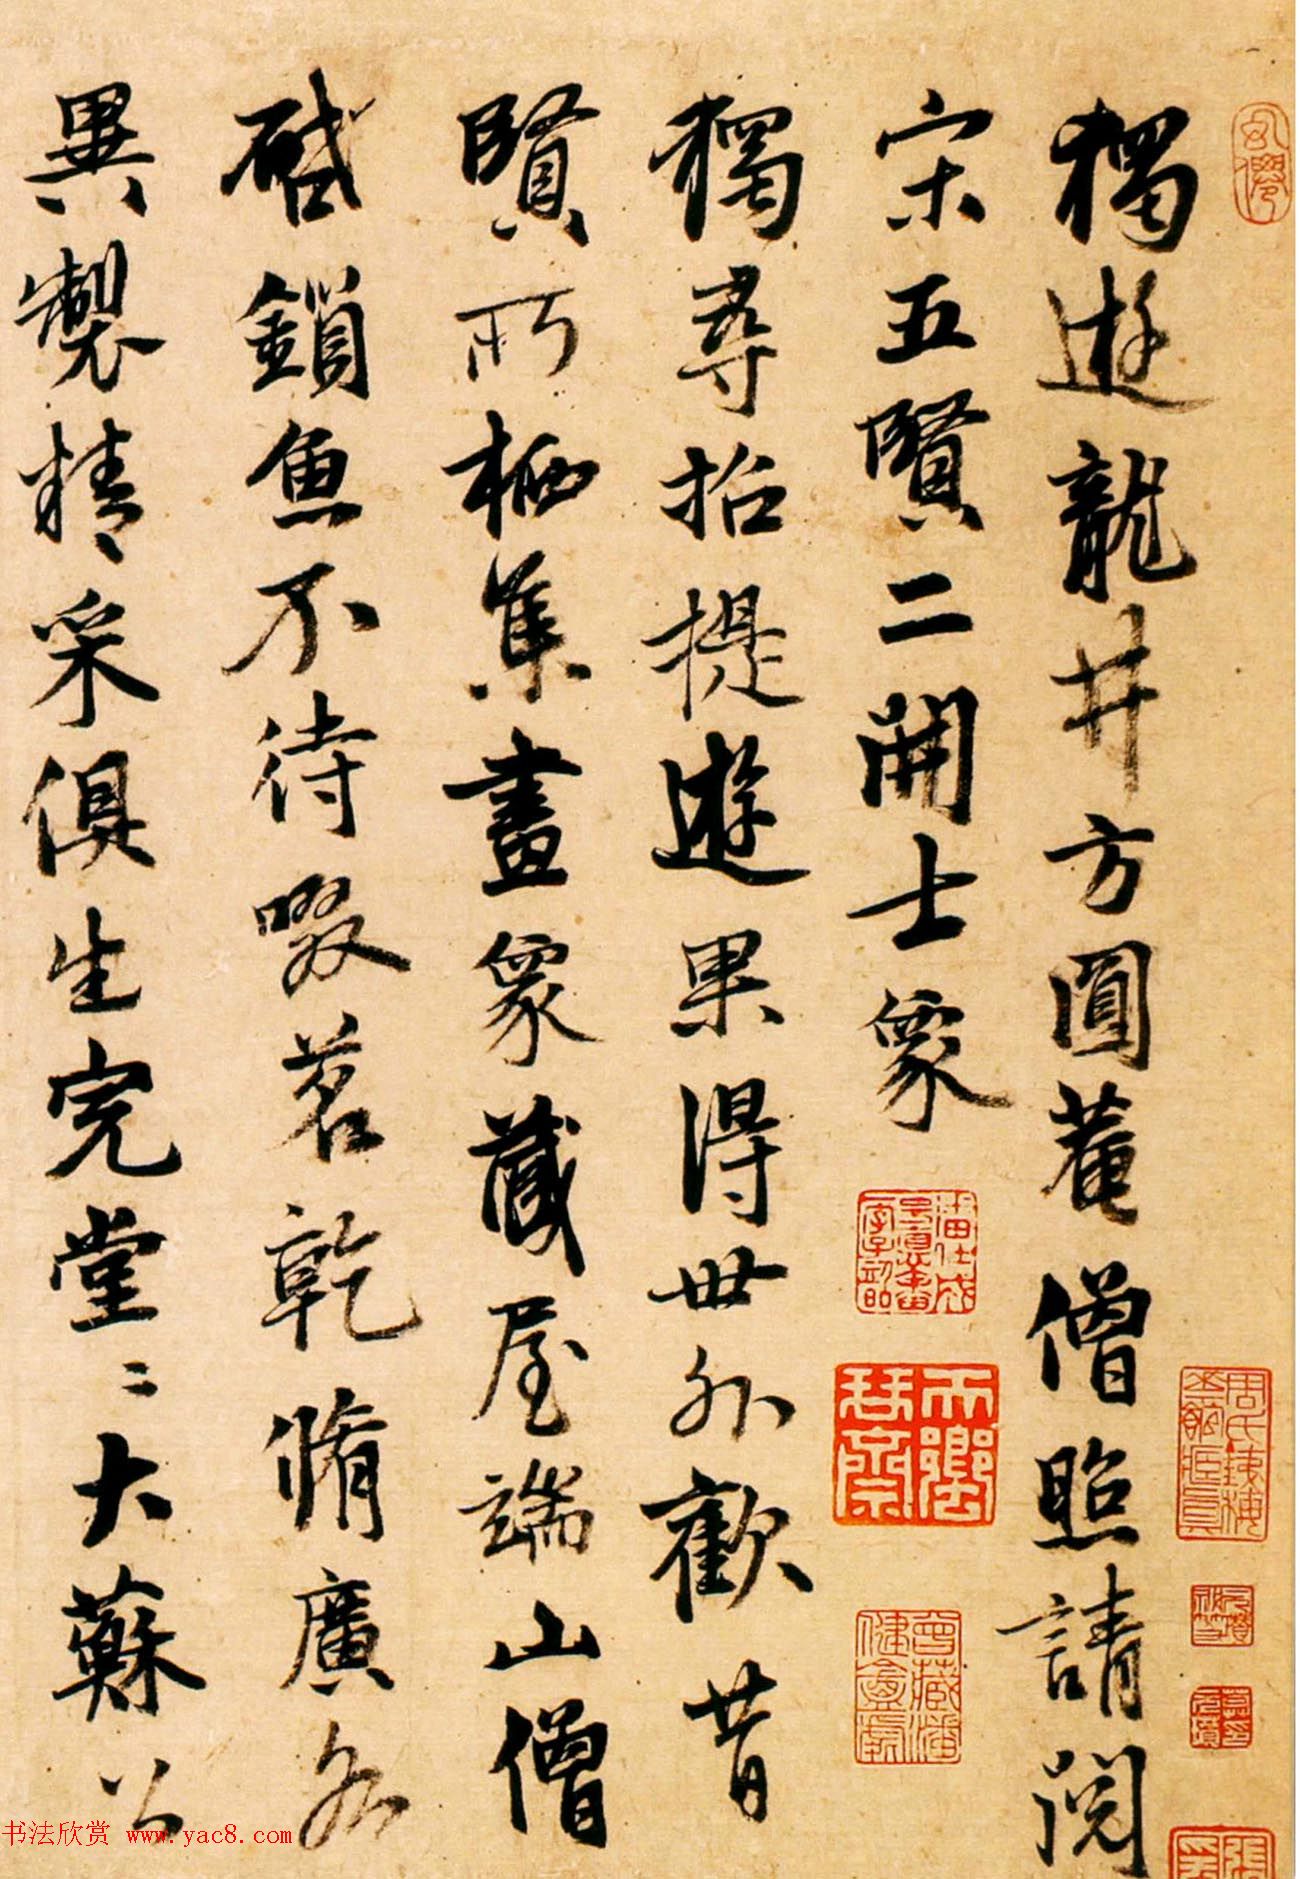 獨遊龍井方圓菴僧照請閱
宋五賢二開士象
獨尋招提遊果得世外歡昔
賢所栖集畫象藏屋端山僧
啟鎖魚不待啜茗乾脩廣各
異製精采俱生完堂〻大蘇公
书法欣赏 www.yac8.com